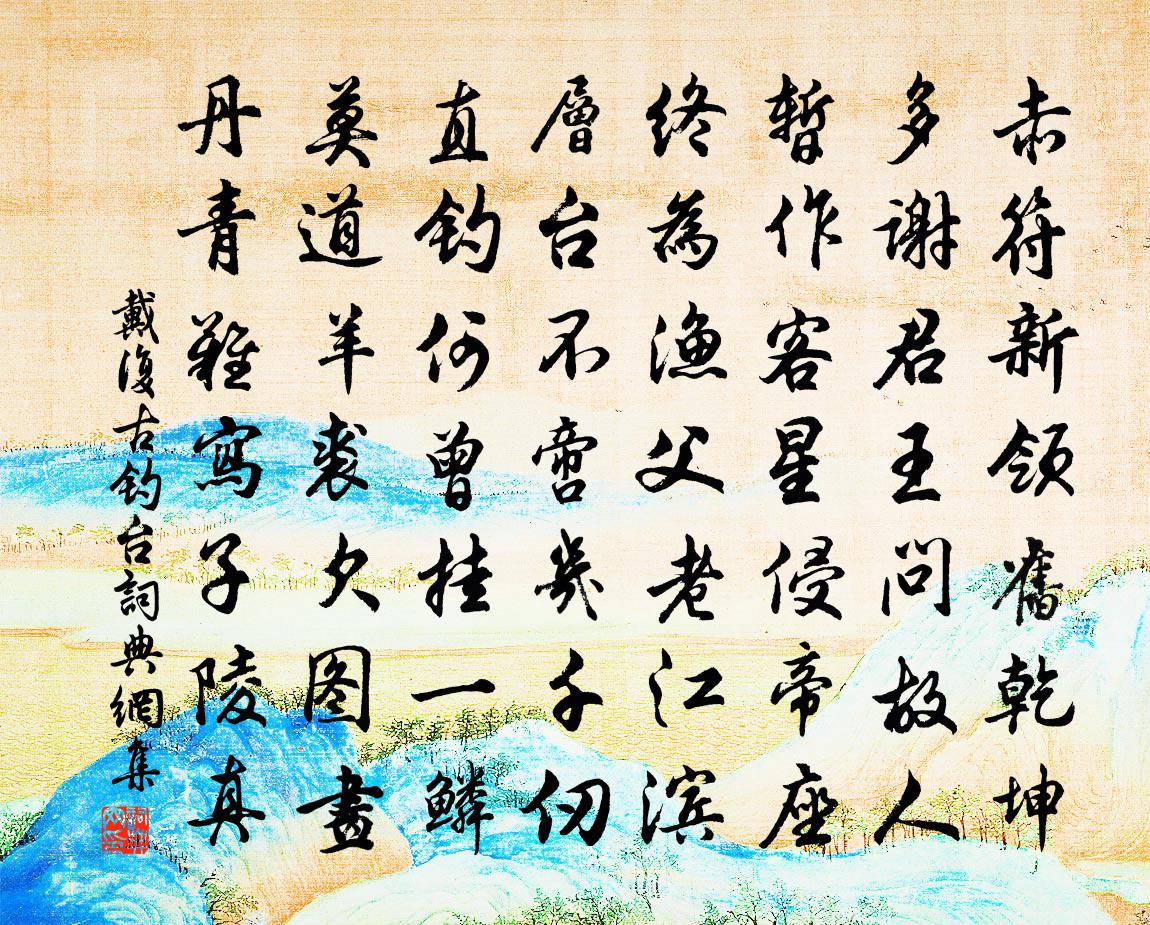 赤符新领舊乾坤
多谢君王问故人
暫作客星侵帝座
终為漁父老江滨
層台不啻幾千仞
直钓何曾挂一鳞
莫道羊裘欠图畫
丹青難寫子陵真
戴復古钓台詞典網集